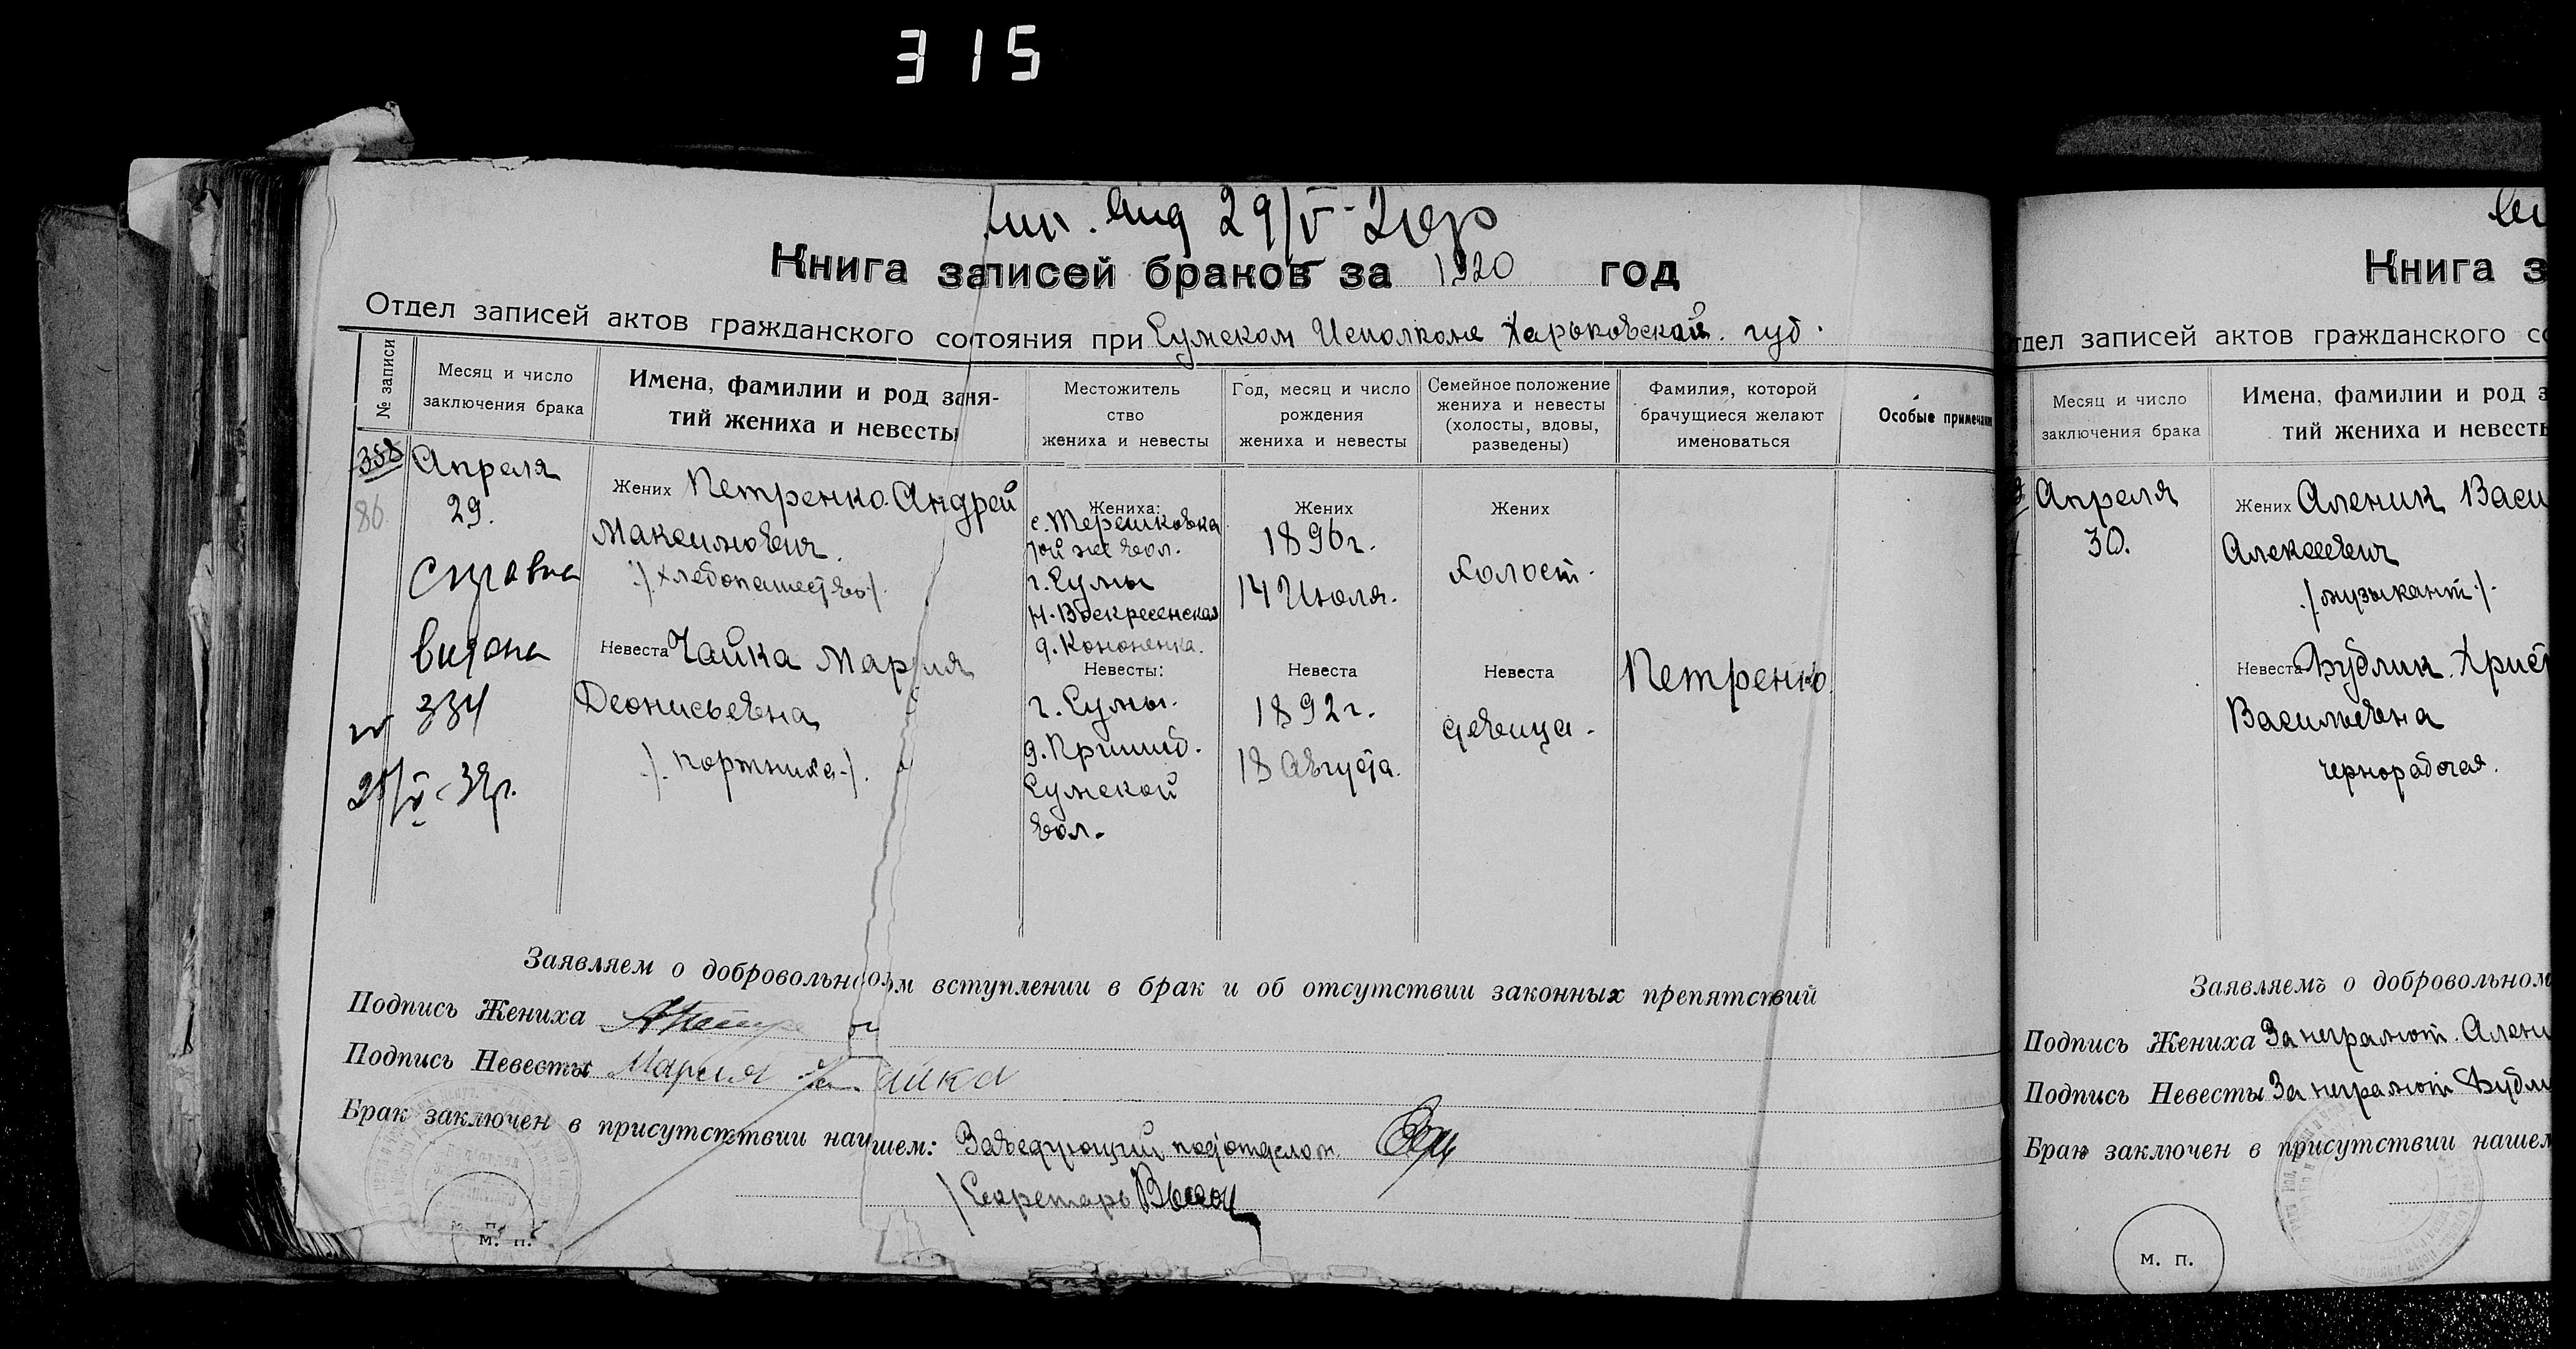 315
29/V-20гр
Книга записей браков за 1920 год
Отдел записей актов гражданского состояния при Сумском Исполкоме Харьковской губ.
№ записи
Месяц и число
заключения брака
Имена, фамилии и род заня-
тий жениха и невесты
Местожитель
ство
жениха и невесты
Год, месяц и число
рождения
жениха и невесты
Семейное положение
жениха и невесты
(холосты, вдовы,
разведены)
Фамилия, которой
брачущиеся желают
именоваться
Особые примечания
358
86.
Апреля
29.
справка
видана
334
Жених Петренко Андрей
Максимович.
/хлебопашество/.
Невеста Чайка Мария
Деонисьевна
/. портниха./.
Жениха:
с. Терешковка
той же вол.
г. Сумы
Н. Воскресенская
д. Кононенка.
Невесты:
г. Сумы.
д. Пришиб.
Сумской
вол.
Жених
1896г.
14 Июля.
Невеста
1892г.
18 Августа.
Жених
Холост.
Невеста
девица.
Петренко.
Заявляем о добровольном вступлении в брак и об отсутствии законных препятствий
Подпись Жениха
Подпись Невесты Мария Чайка
Брак заключен в присутствии нашем: Заведующий подотделом
Секретарь
м. п.
Книга з
тдел записей актов гражданского со
Месяц и число
заключения брака
Имена, фамилии и род з
тий жениха и невесть
Апреля
30.
Жених Аленик Васи
Алексеевич
./музыкант/.
Невеста Бублик Христ
Васильевна
чернорабочая.
Заявляемъ о добровольном
Подпись Жениха За неграмот. Алени
Подпись Невесты За неграмот Бубли
Брак заключен в присутствии нашем
м. п.